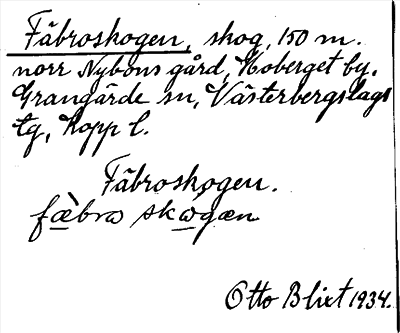 Fäbroskogen, skog, 150 m.
norr Nybons gård, Hoberget by.
Grangärde sn, Västerbergslags
tg, Kopp l.
Fäbroskogen.
fæ̀bro skógæn
Otto Blixt 1934.